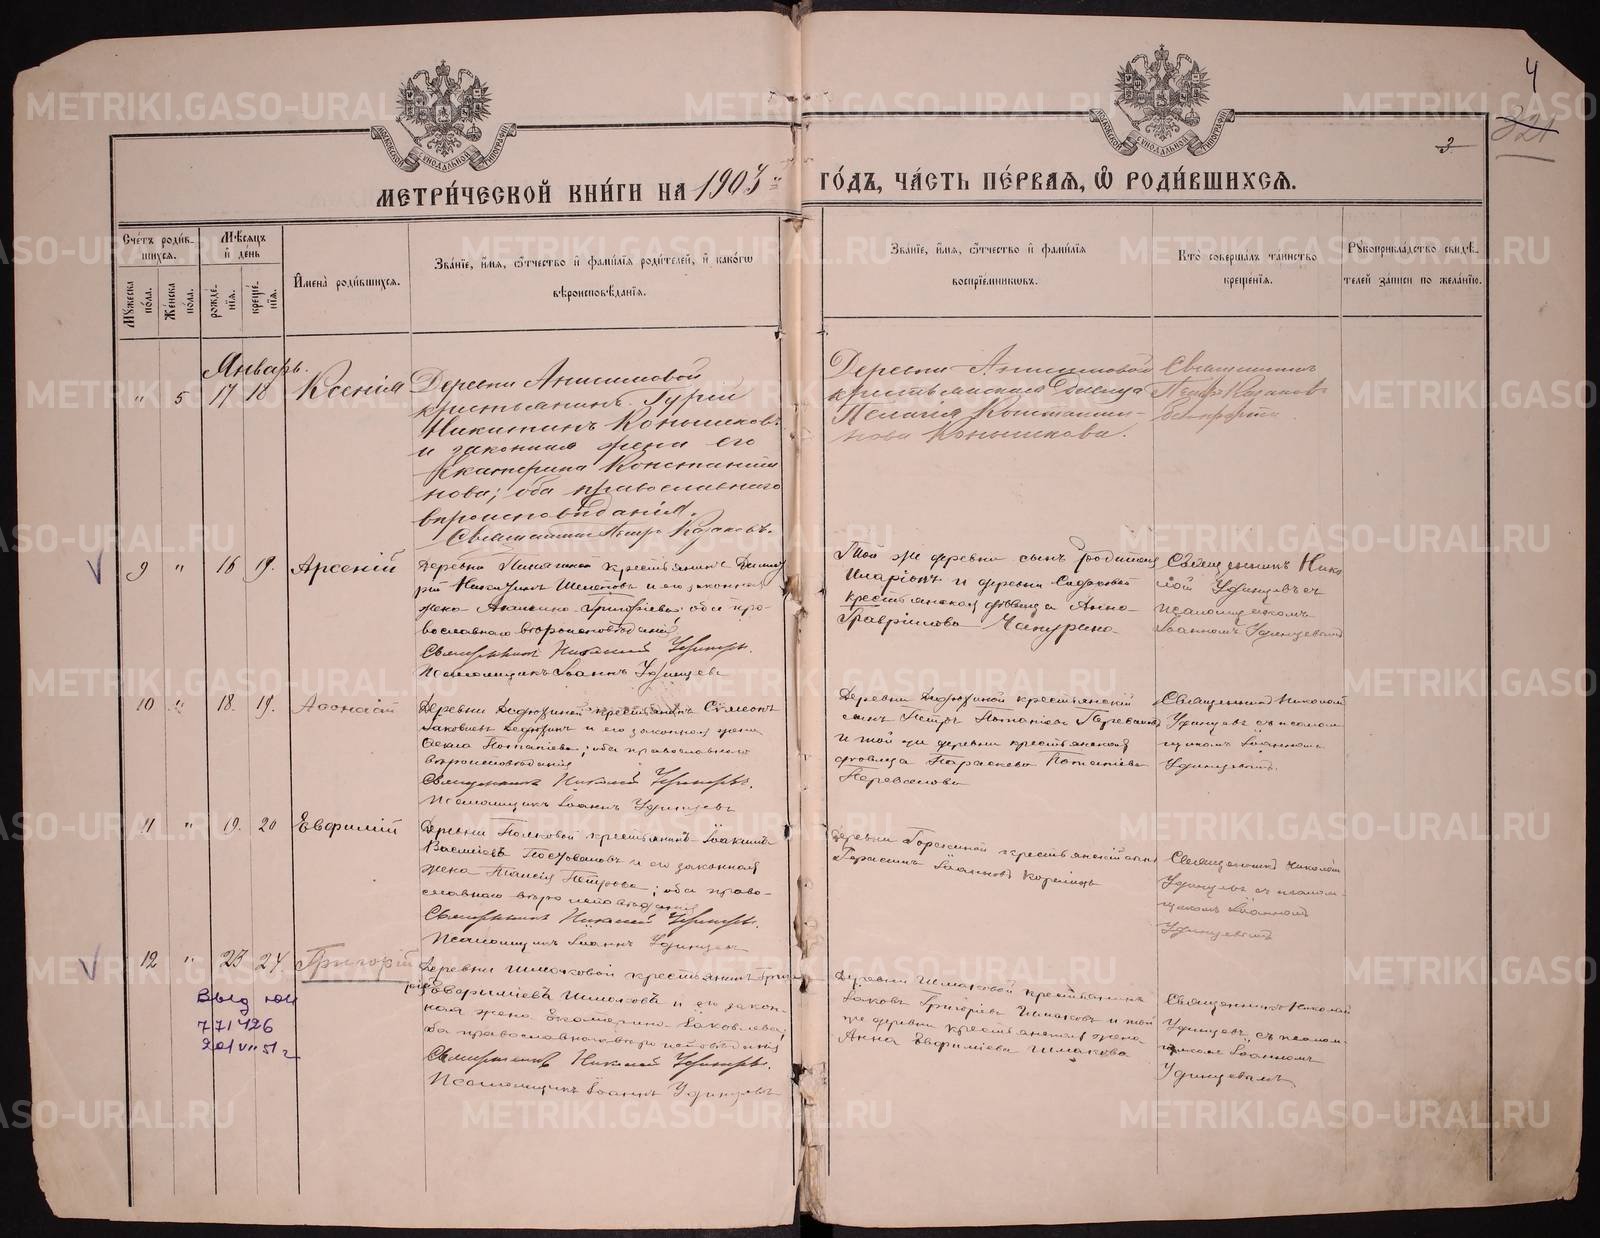 4
321
3
МОСКОВСКОЙ СѴНОДАЛЬНОЙ ТИПОГРАФІИ
МОСКОВСКОЙ СѴНОДАЛЬНОЙ ТИПОГРАФІИ
МЕТРИ́ЧЕСКОЙ КНИ́ГИ НА 1903 й ГО́ДЪ, ЧА́СТЬ ПЕ́РВАѦ, Ѡ҆ РОДИ́ВШИХСѦ.
Сче́тъ роди́в-
шихсѧ.
Мꙋжеска по́ла.
Же́нска по́ла.
Мѣ́сѧцъ и҆ де́нь
рожде́-нїѧ.
креще́-нїѧ.
И҆мена̀ роди́вшихсѧ.
Зва́нїе, и҆́мѧ, ѻ҆́тчество и҆ фами́лїѧ роди́телей, и҆ како́гѡ
вѣроисповѣ́данїѧ.
Зва́нїе, и҆́мѧ, ѻ҆́тчество и҆ фами́лїѧ
воспрїе́мникѡвъ.
Кто̀ соверша́лъ та́инство
креще́нїѧ.
Рꙋкоприкла́дство свидѣ́-
телей за́писи по жела́нїю.
Январь.
" 5 17 18 Ксенія
Деревни Анисимовой
крестьянинъ Гурій
Никитинъ Конышковъ
и законная жена его
Екатерина Константи
нова; оба православнаго
вѣроисповѣданія.
Священникъ Петръ Казаковъ.
Деревни Анисимовой
крестьянская дѣвица
Пелагія Константи-
нова Конышкова.
Священникъ
Петръ Казаковъ
9 " 16 19. Арсеній
крестьянинъ Дими
рій и его законная
жена Григорьева; оба пра-
вославнаго вѣроисповѣданія
Священникъ Николай Удинцевъ.
Псаломщикъ Іоаннъ Удинцевъ
Той же деревни сынъ родителя
Иларіонъ и деревни
крестьянская дѣвица Анна
Гавріилова Чапурина
Священникъ Нико
лай Удинцевъ съ
псаломщикомъ
Іоанномъ Удинцевымъ
10 " 18. 19. Аѳанасій
Деревни Дедюхиной крестьянинъ Сѵмеонъ
Іаковлевъ Дедюхинъ и его законная жена
Ѳекла Потапіева; оба православнаго
вѣроисповѣданія
Священникъ Николай Удинцевъ.
Псаломщикъ Іоаннъ Удинцевъ
Деревни Дедюхиной крестьянскій
сынъ Петръ Потапіевъ Переваловъ
и той же деревни крестьянская
дѣвица Параскева Потапіева
Перевалова
Священникъ Николай
Удинцевъ съ псалом-
щикомъ Іоанномъ
Удинцевымъ.
11 " 19. 20 Евѳимій
Деревни крестьянинъ Іоакимъ
Василіевъ и его законная
жена Таисія Петрова; оба право-
славнаго вѣроисповѣданія
Священникъ Николай Удинцевъ.
Псаломщикъ Іоаннъ Удинцевъ
Деревни крестьянскій сынъ
Герасимъ Іоанновъ
Священникъ Николай
Удинцевъ съ псалом-
щикомъ Іоанномъ
Удинцевымъ
12 " 23 24 Григорій
Деревни Шмаковой крестьянинъ Григо
рій Евѳиміевъ Шмаковъ и его закон-
ная жена Екатерина Іаковлева;
оба православнаго вѣроисповѣданія
Священникъ Николай Удинцевъ.
Псаломщикъ Іоаннъ Удинцевъ
Деревни Шмаковой крестьянинъ
Іаковъ Григоріевъ Шмаковъ и той
же деревни крестьянская жена
Анна Евѳиміева Шмакова
Священникъ Николай
Удинцевъ съ псалом-
щикомъ Іоанномъ
Удинцевымъ
771426
20/VII 51 г
METRIKI.GASO-URAL.RU